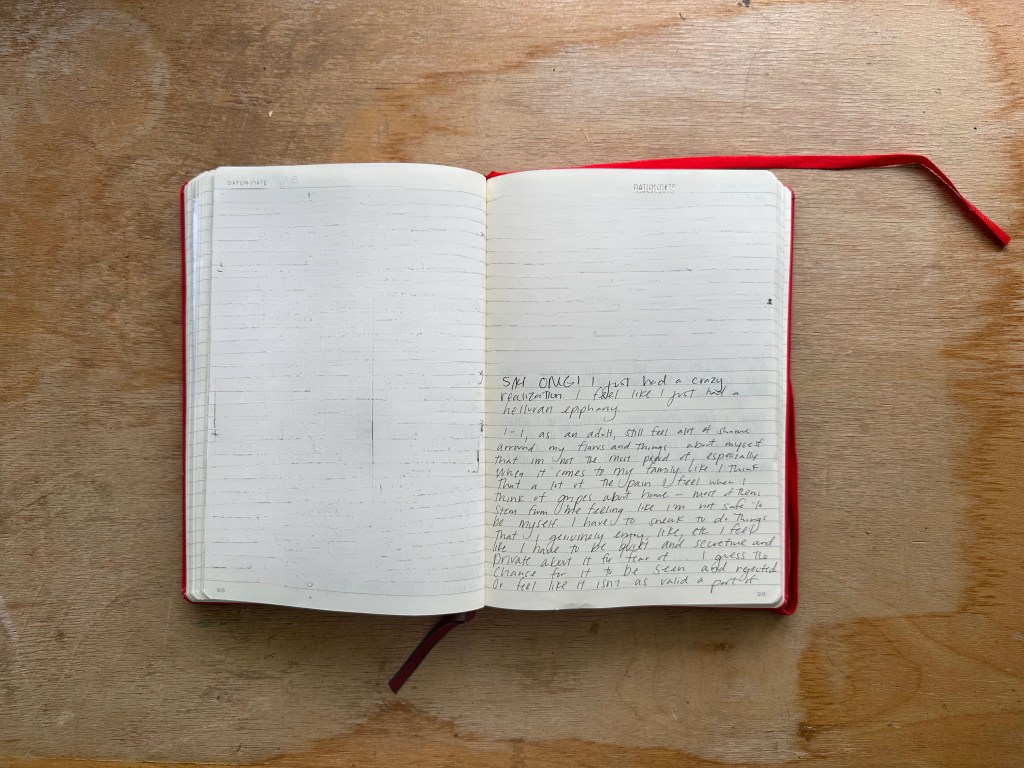 DATUM/DATE
DATUM/DATE
OMG! I just had a crazy
realization I feel like I just had a
helluvan epiphany
I-I, as an adult, still feel alot of shame
arround my and things about myself
that im not the most proud of, especially
when it comes to my family like I think
That a lot of the pain I feel when I
think of gripes about home - most of them
stem from me feeling like i'm not safe to
be myself. I have to sneak to do things
that I genuinely enjoy, like, etc I feel
like I have to be quiet and secretive and
private about it for fear of I guess the
chance for it to be seen and rejected
Or feel like it isn't as valid a part of